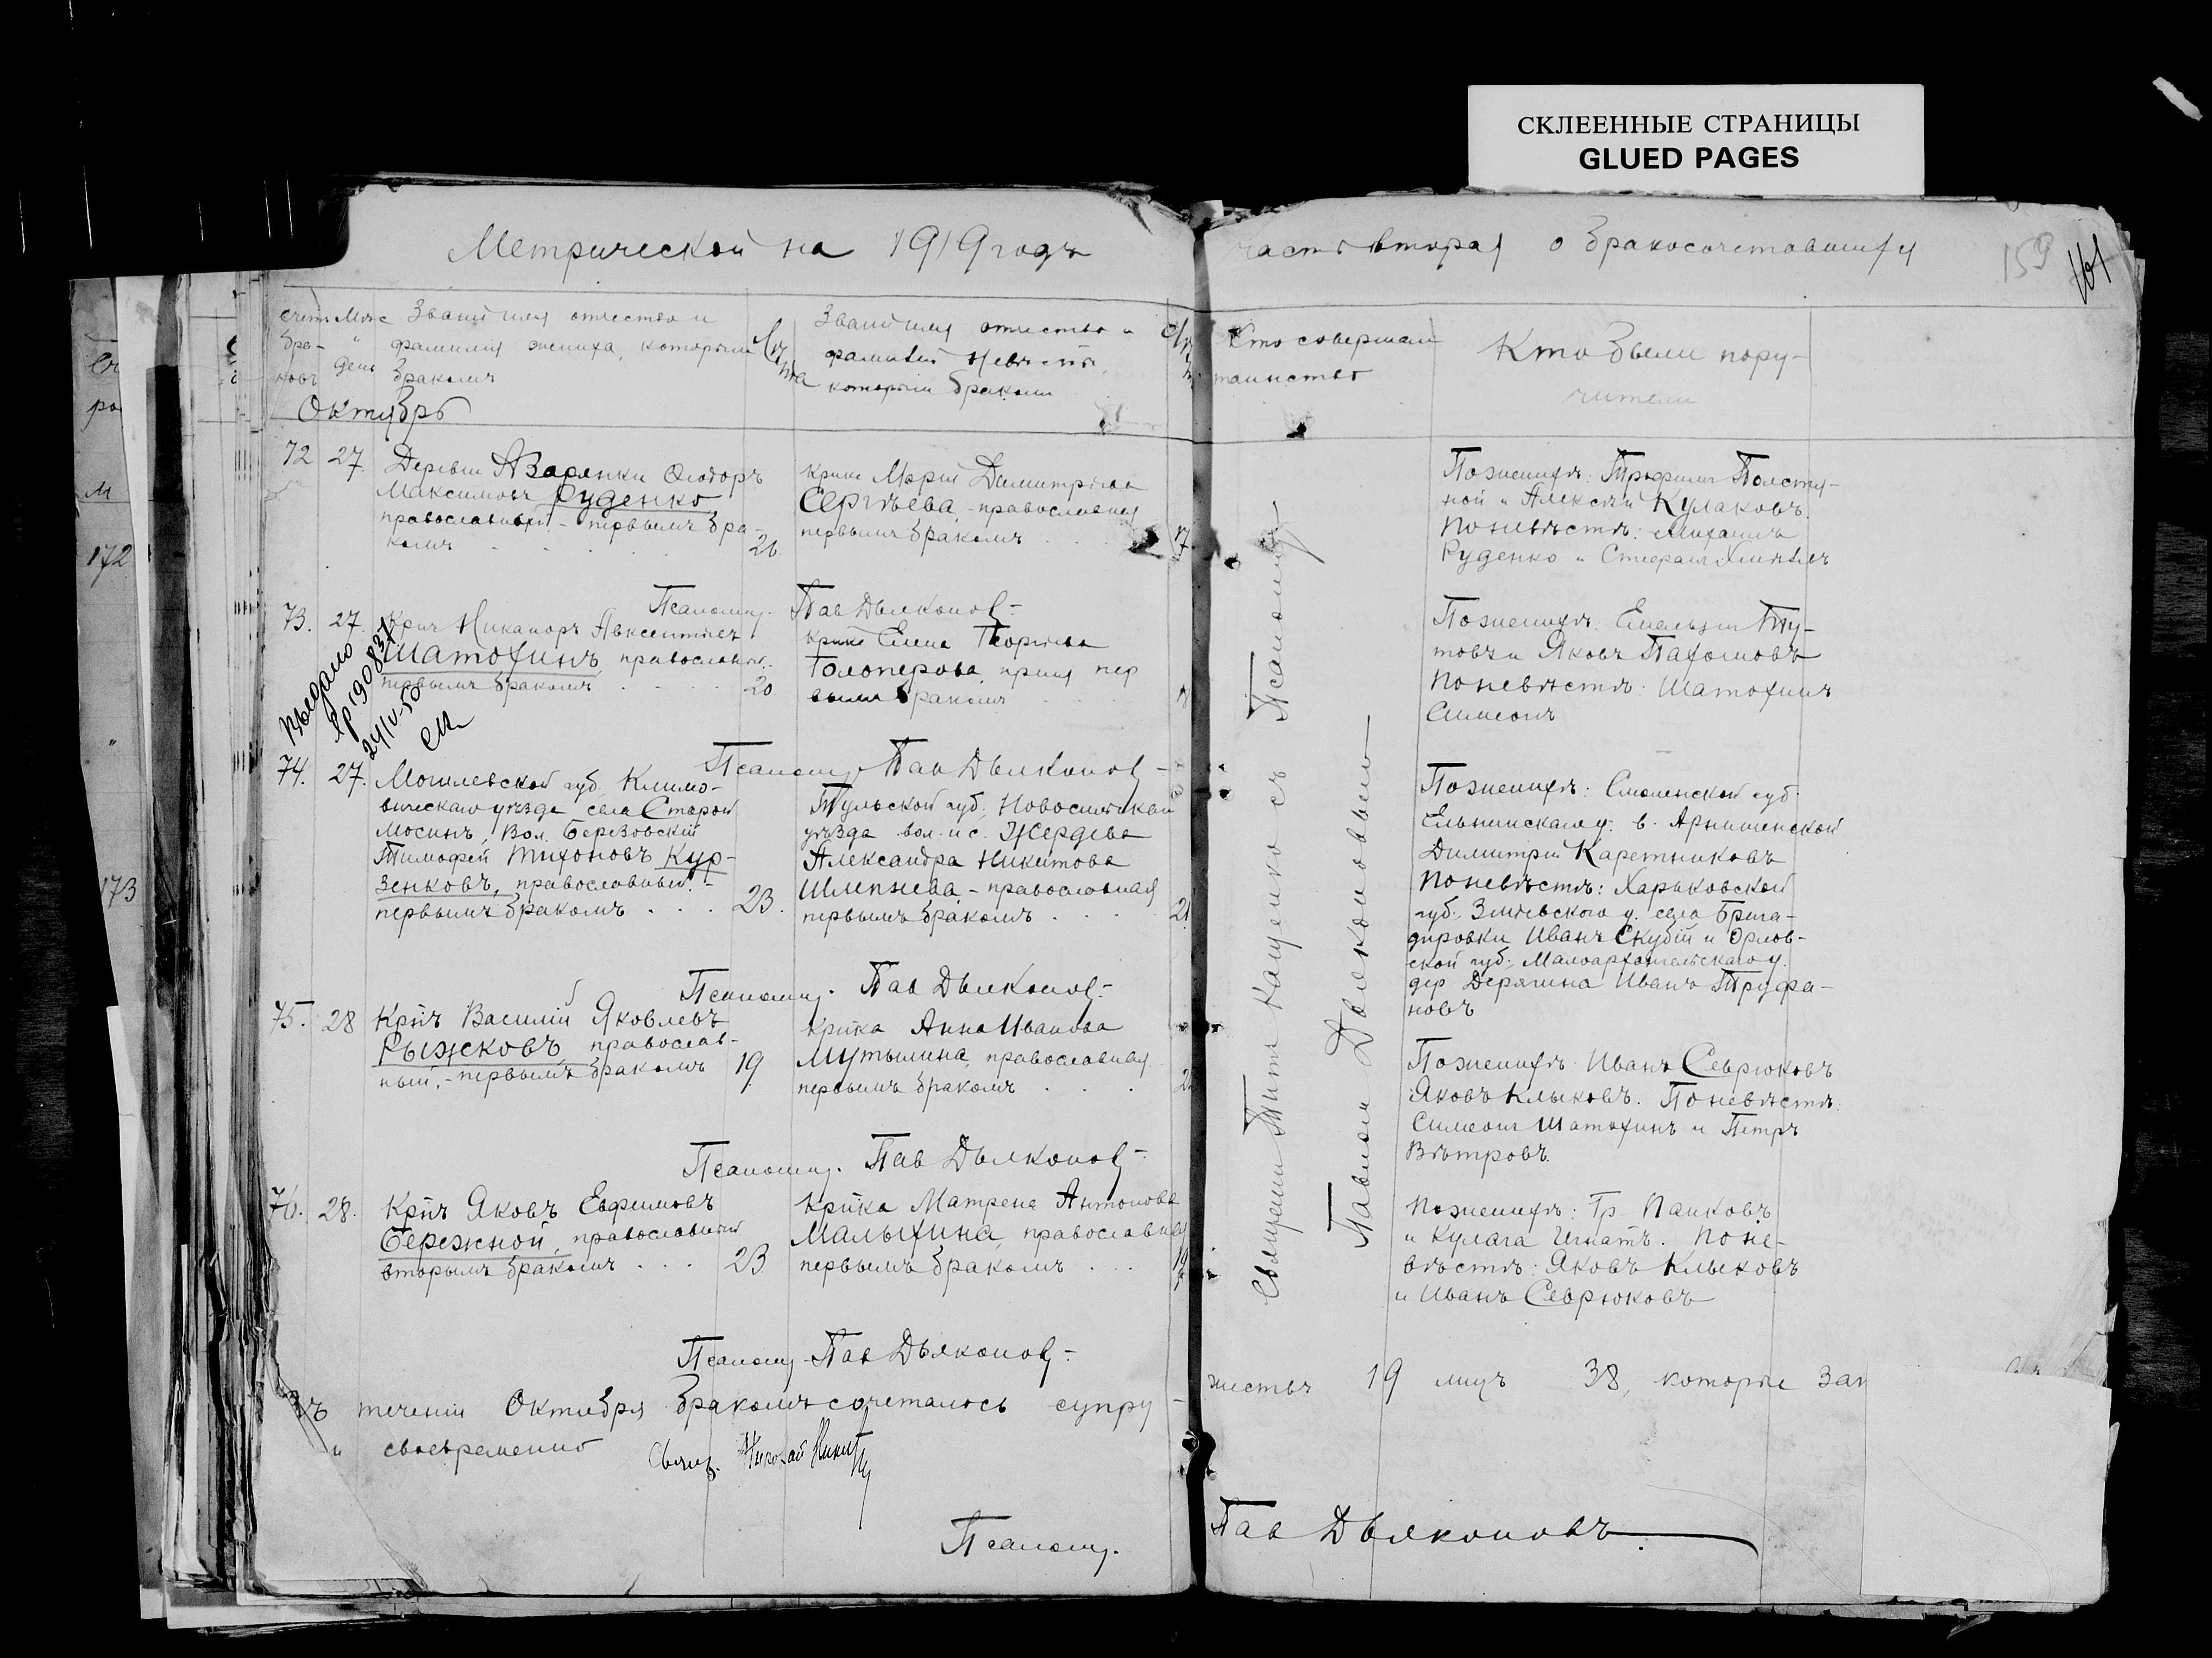 СКЛЕЕННЫЕ СТРАНИЦЫ
GLUED PAGES
Метрической на 1919 годъ
часть вторая о бракосочетавшихся
159
161
счетъ
бра-
ковъ
день
фамилия жениха, которымъ
бракомъ
Лѣта
отчество и
которым браком
Кто совершал
таинство
Кто были пору-
чители
Октябрь
72 27. Деревни Ѳеодоръ
Максимовъ Руденко
православный - первымъ бра-
комъ . . . . 26
Марія Димитріева
Сергѣева, - православная
первымъ бракомъ . . 17
По женихѣ: Трофимъ Толсту-
ной и Алексѣй Кулаковъ.
По невѣстѣ: Михаилъ
Руденко и Стефанъ
Псаломщ. Пав Дьяконов-
73. 27. Крнъ Никаноръ Авксентьев
Шатохинъ, православн.
первымъ бракомъ . . . . 20
Елена Георгіева
Голоперова,
вымъ бракомъ
По женихѣ: Емельян
и Яковъ Пахомовъ
По невѣстѣ: Шатохинъ
Симеонъ
Выдано
190837
24/IV-50
Псаломщ. Пав Дьяконов-
74. 27. Могилевской губ. Климо-
вическаго уѣзда села Старой
Мосинъ, Вол. Березовскій
Тимофей Тихоновъ Кур-
зенковъ, православный. -
первымъ бракомъ . . . 23.
Тульской губ., Новосильскаго
уѣзда вол. и с. Жердева
Александра Никитова
Шлепнева, - православная
первымъ бракомъ . . . 21
По женихѣ: Смоленской губ.
Ельнинскаго у. в. Арнишенской
Димитрій Каретниковъ
По невѣстѣ: Харьковской
губ., Зміевского у. села Брига-
дировки Иванъ Скубій и Орлов-
ской губ., Малоархангельскаго у.
дер Дерягина Иванъ Труфа-
новъ
Псаломщ. Пав Дьяконов-
75. 28 Крнъ Василій Яковлевъ
Рыжковъ, православ-
ный, - первымъ бракомъ 19
Крнка Анна Иванова
Мутылина, православная
первымъ бракомъ . . .
По женихѣ: Иванъ Севрюковъ
Яковъ Клыковъ. По невѣстѣ:
Симеонъ Шатохинъ и Петръ
Вѣтровъ.
Псаломщ. Пав Дьяконов-
76. 28. Крнъ Яковъ Евфимовъ
Бережной, православный
вторымъ бракомъ . . . 23
Крнка Матрена Антонова
Малыхина, православная
первымъ бракомъ . . . 19
По женихѣ: Гр Панковъ
и Кулага Игнатъ. По не-
вѣстѣ: Яковъ Клыковъ
и Иванъ Севрюковъ
Псаломщ. Пав Дьяконов-
Священник Титъ Каценко съ Псаломщ.
Павлом Дьяконовым
Въ теченіи Октября бракомъ сочеталось супру-
жествъ 19 лицъ 38, которые зап
и своевременно
Свящ. Николай
Псаломщ. Пав Дьяконовъ
172
173